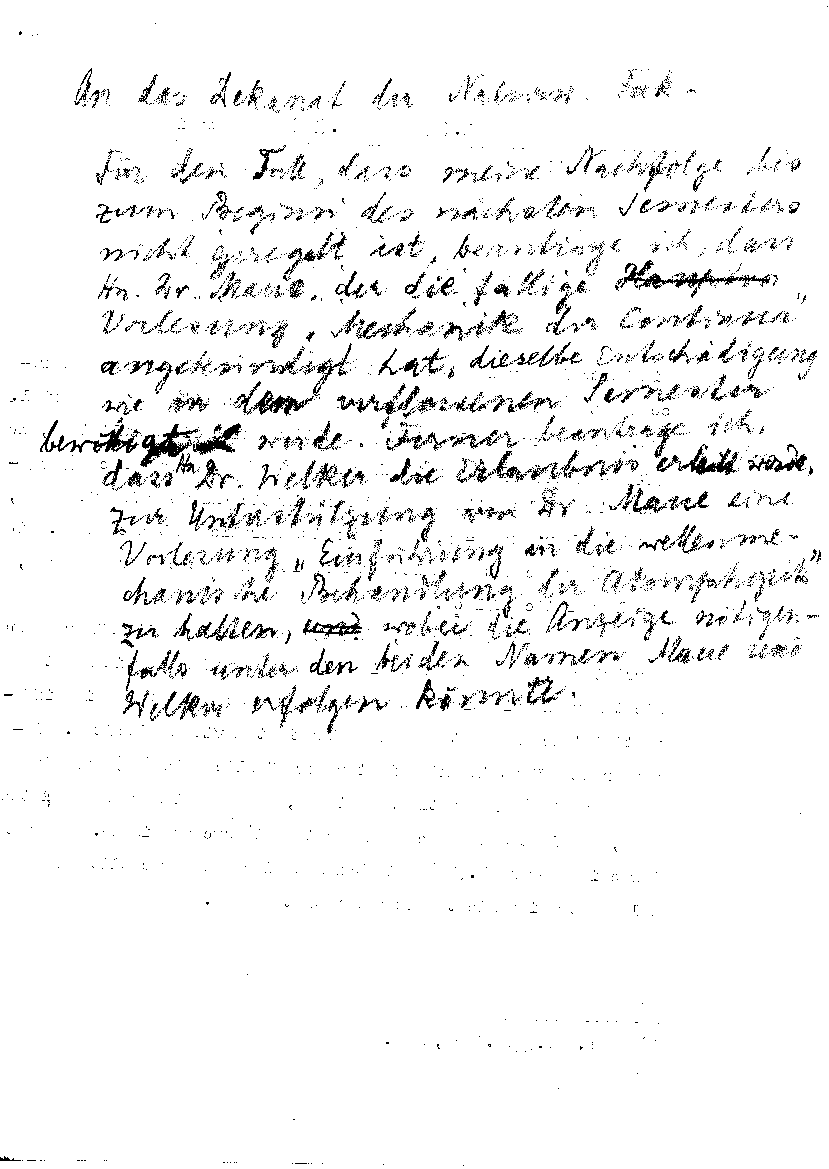 An das Dekanat der Naturw. Fak.
Für den Fall, dass meine Nachfolge bis
zum Beginn des nächsten Semesters
nicht geregelt ist, beantrage ich, dass
Hn. Dr. Maue, der die fällige
Vorlesung „Mechanik der Continua"
angekündigt hat, dieselbe Entschädigung
wie in dem verflossenen Semester
bewilligt werde. Ferner beantrage ich,
dass Hn Dr. Welker die Erlaubnis erteilt werde,
zur Unterstützung von Dr. Maue eine
Vorlesung „Einführung in die wellenme-
chanische Behandlung der Atomphysik"
zu halten, und wobei die Anzeige nötigen-
falls unter den beiden Namen Maue und
Welker erfolgen könnte.